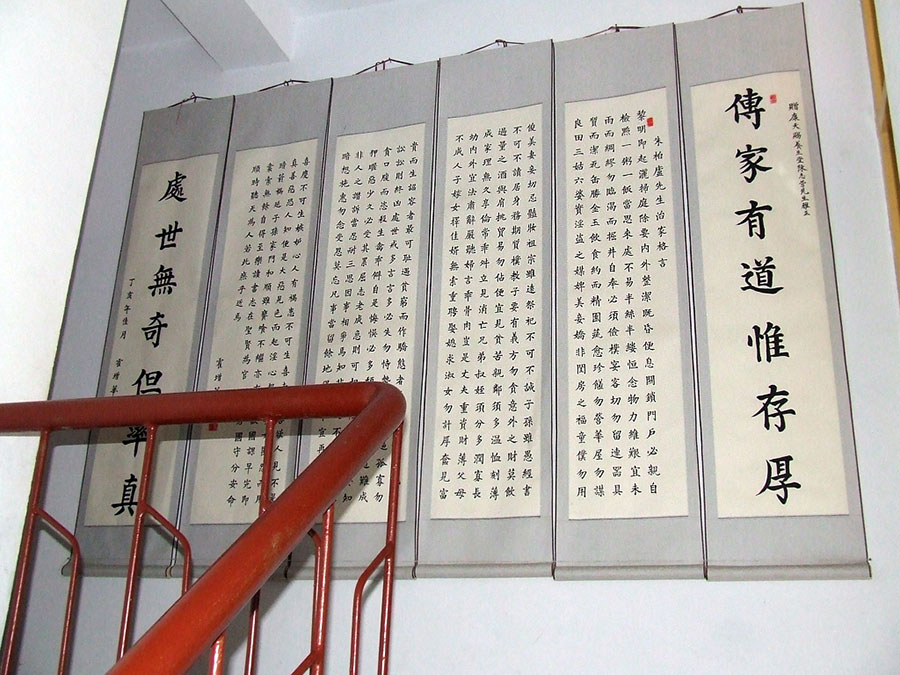 傳家有道惟存厚
朱柏廬先生治家格言
黎明即起灑掃庭除要内外整潔既昏便息關鎖門戶必親自
檢點一粥一飯當思來處不易半絲半縷恒念物力維艱宜未
雨而綢繆勿臨渴而掘井自奉必須儉樸宴客切勿留連器具
質而潔瓦缶勝金玉飲食約而精園蔬愈珍饈勿營華屋勿謀
良田三姑六婆實淫盜之媒婢美妾嬌非閨房之福童僕勿用
俊美妻妾切忌豔妝祖宗雖遠祭祀不可不誠子孫雖愚經書
不可不讀居身務期質樸教子要有義方勿貪意外之財莫飲
過量之酒與肩挑貿易勿佔便宜見貧苦親鄰須多溫恤刻薄
成家理無久享倫常乖舛立見消亡兄弟叔姪須分多潤寡長
幼內外宜法肅辭嚴聽婦言乖骨肉豈是丈夫重資財薄父母
不成人子嫁女擇佳婿無索重聘娶媳求淑女勿計厚奩見富
貴而生諂容者最可恥遇貧窮而作驕態者
訟訟則終凶處世戒多言言多必失勿恃勢 孤寡勿
貪口腹而恣殺生禽乖僻自是悔悞必多 難成
狎暱惡少久必受其累屈志老成急則可相
人之譖訴當忍耐三思因事相爭焉知非 知
暗想施惠勿念受恩莫忘凡事當留餘地 宜再
喜慶不可生嫉妒心人有禍患不可生喜 人見不
真善惡恐人知便是大惡見色而起淫心 而用
暗箭禍延子孫家門和順雖饔飧不繼亦 國課早完即
囊橐無餘自得至樂讀書志在聖賢為官 國守分安命
順時聽天為人若此庶乎近焉
霍增
處世無奇但率真
丁亥年佳月
霍增華